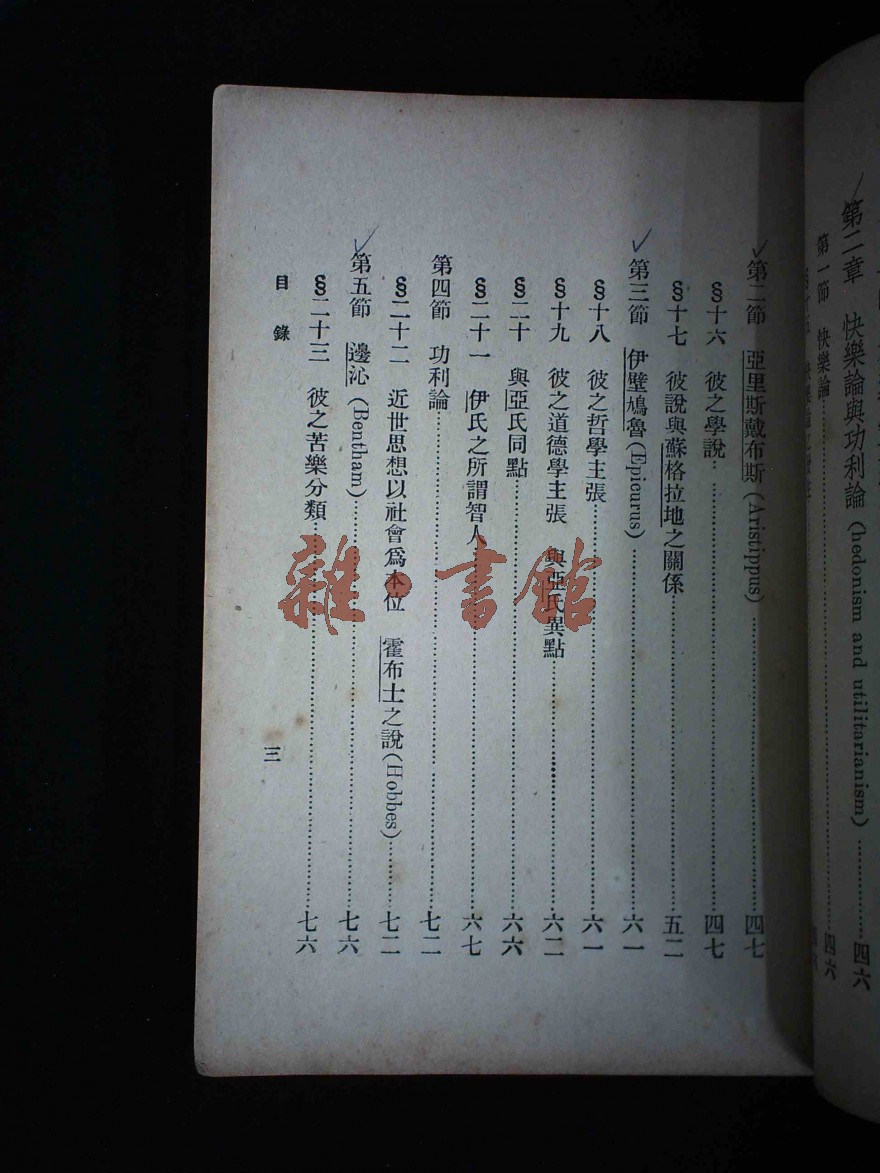 第二章 快樂論與功利論(hedonism and utilitarianism)……四六
第一節 快樂論……四六
第二節 亞里斯戴布斯(Aristippus)……四七
§十六 彼之學說……四七
§十七 彼說與蘇格拉地之關係……五二
第三節 伊壁鳩魯(Epicurus)……六一
§十八 彼之哲學主張……六一
§十九 彼之道德學主張 與亞氏異點……六二
§二十 與亞氏同點……六六
§二十一 伊氏之所謂智人……六七
第四節 功利論……七二
§二十二 近世思想以社會爲本位 霍布士之說(Hobbes)……七二
第五節 邊沁(Bentham)……七六
§二十三 彼之苦樂分類……七六
目錄
三
雜·書館